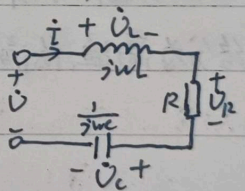 İ + U̇L -
jωL
+
U̇
-
R
+
U̇R
-
1/jωc
- U̇c +